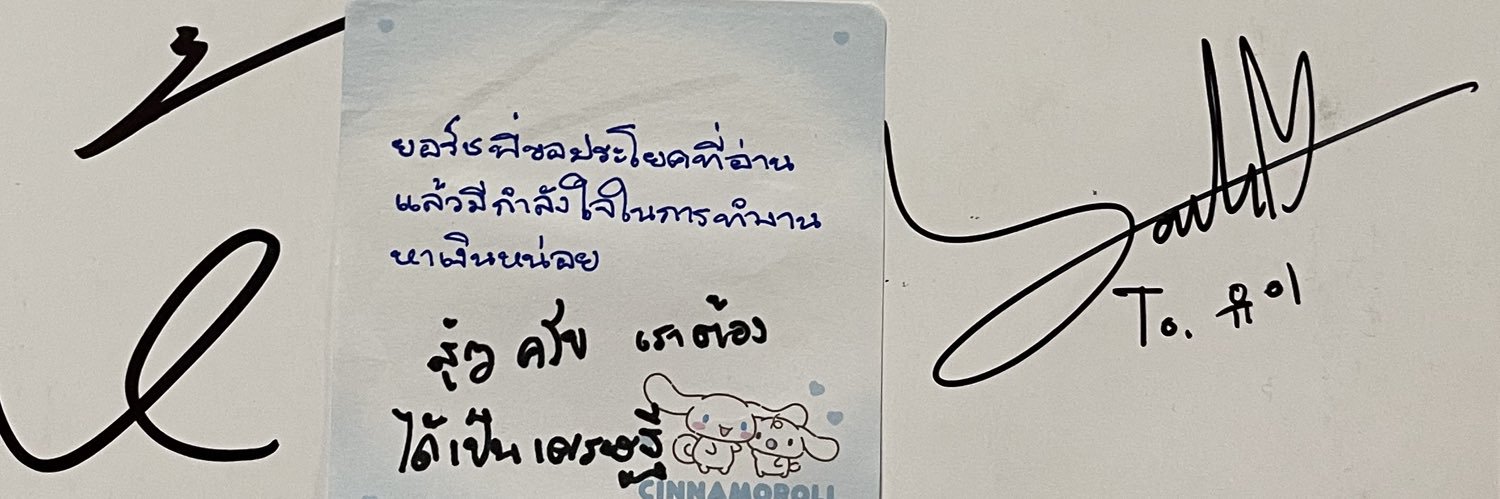 ยอร์ชพี่ขอประโยคที่อ่าน
แล้วมีกำลังใจในการทำงาน
หาเงินหน่อย
สู้ๆ ครับ เราต้อง
ได้เป็นเศรษฐี
CINNAMOROLL
To. 유이